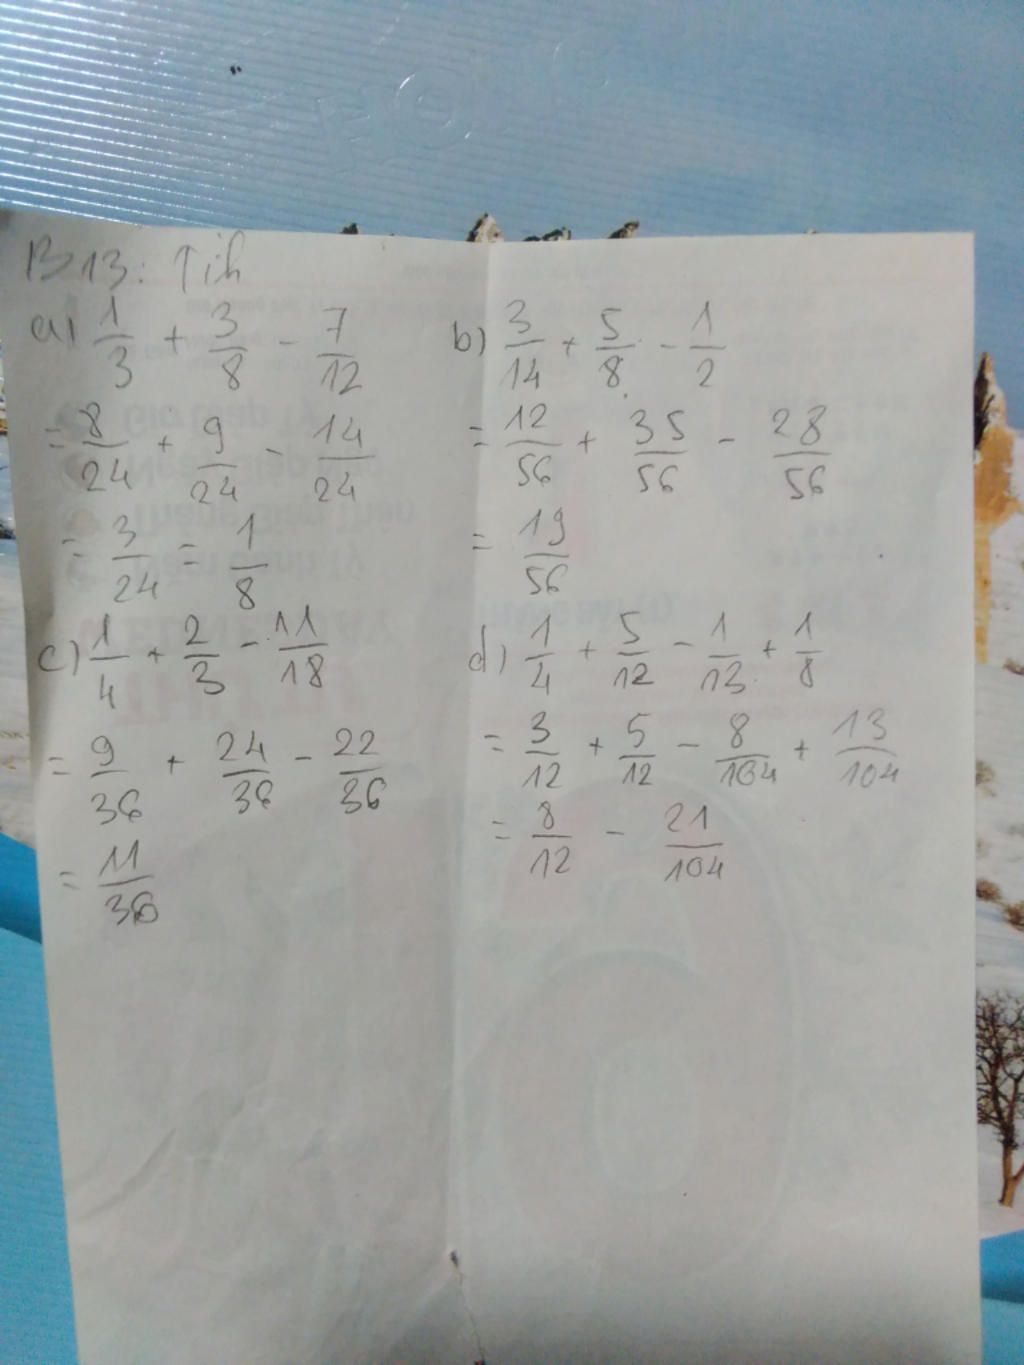 B13: Tíh
a) 1/3 + 3/8 - 7/12
= 8/24 + 9/24 - 14/24
= 3/24 = 1/8
b) 3/14 + 5/8 - 1/2
= 12/56 + 35/56 - 28/56
= 19/56
c) 1/4 + 2/3 - 11/18
= 9/36 + 24/36 - 22/36
= 11/36
d) 1/4 + 5/12 - 1/13 + 1/8
= 3/12 + 5/12 - 8/104 + 13/104
= 8/12 - 21/104